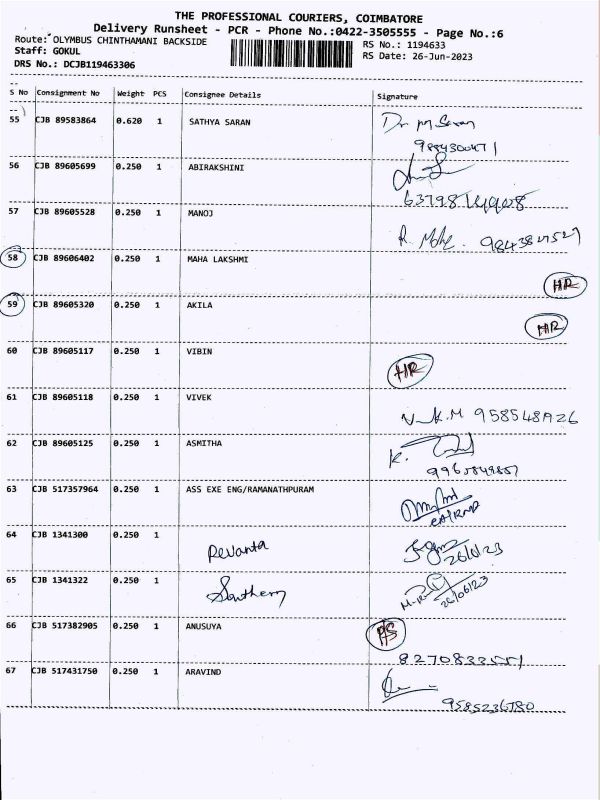 THE PROFESSIONAL COURIERS, COIMBATORE
Delivery Runsheet - PCR - Phone No.:0422-3505555 - Page No.:6
Route: OLYMBUS CHINTHAMANI BACKSIDE
RS No.: 1194633
Staff: GOKUL
RS Date: 26-Jun-2023
DRS No.: DCJB119463306
S No Consignment No Weight PCS Consignee Details Signature
55 CJB 89583864 0.620 1 SATHYA SARAN Dr M Saran
56 CJB 89605699 0.250 1 ABIRAKSHINI
57 CJB 89605528 0.250 1 MANOJ
58 CJB 89606402 0.250 1 MAHA LAKSHMI HR
59 CJB 89605320 0.250 1 AKILA HR
60 CJB 89605117 0.250 1 VIBIN HR
61 CJB 89605118 0.250 1 VIVEK
62 CJB 89605125 0.250 1 ASMITHA K.
63 CJB 517357964 0.250 1 ASS EXE ENG/RAMANATHPURAM
64 CJB 1341300 0.250 1 Revanta
65 CJB 1341322 0.250 1 Southern 26/06/23
66 CJB 517382905 0.250 1 ANUSUYA P/S
67 CJB 517431750 0.250 1 ARAVIND